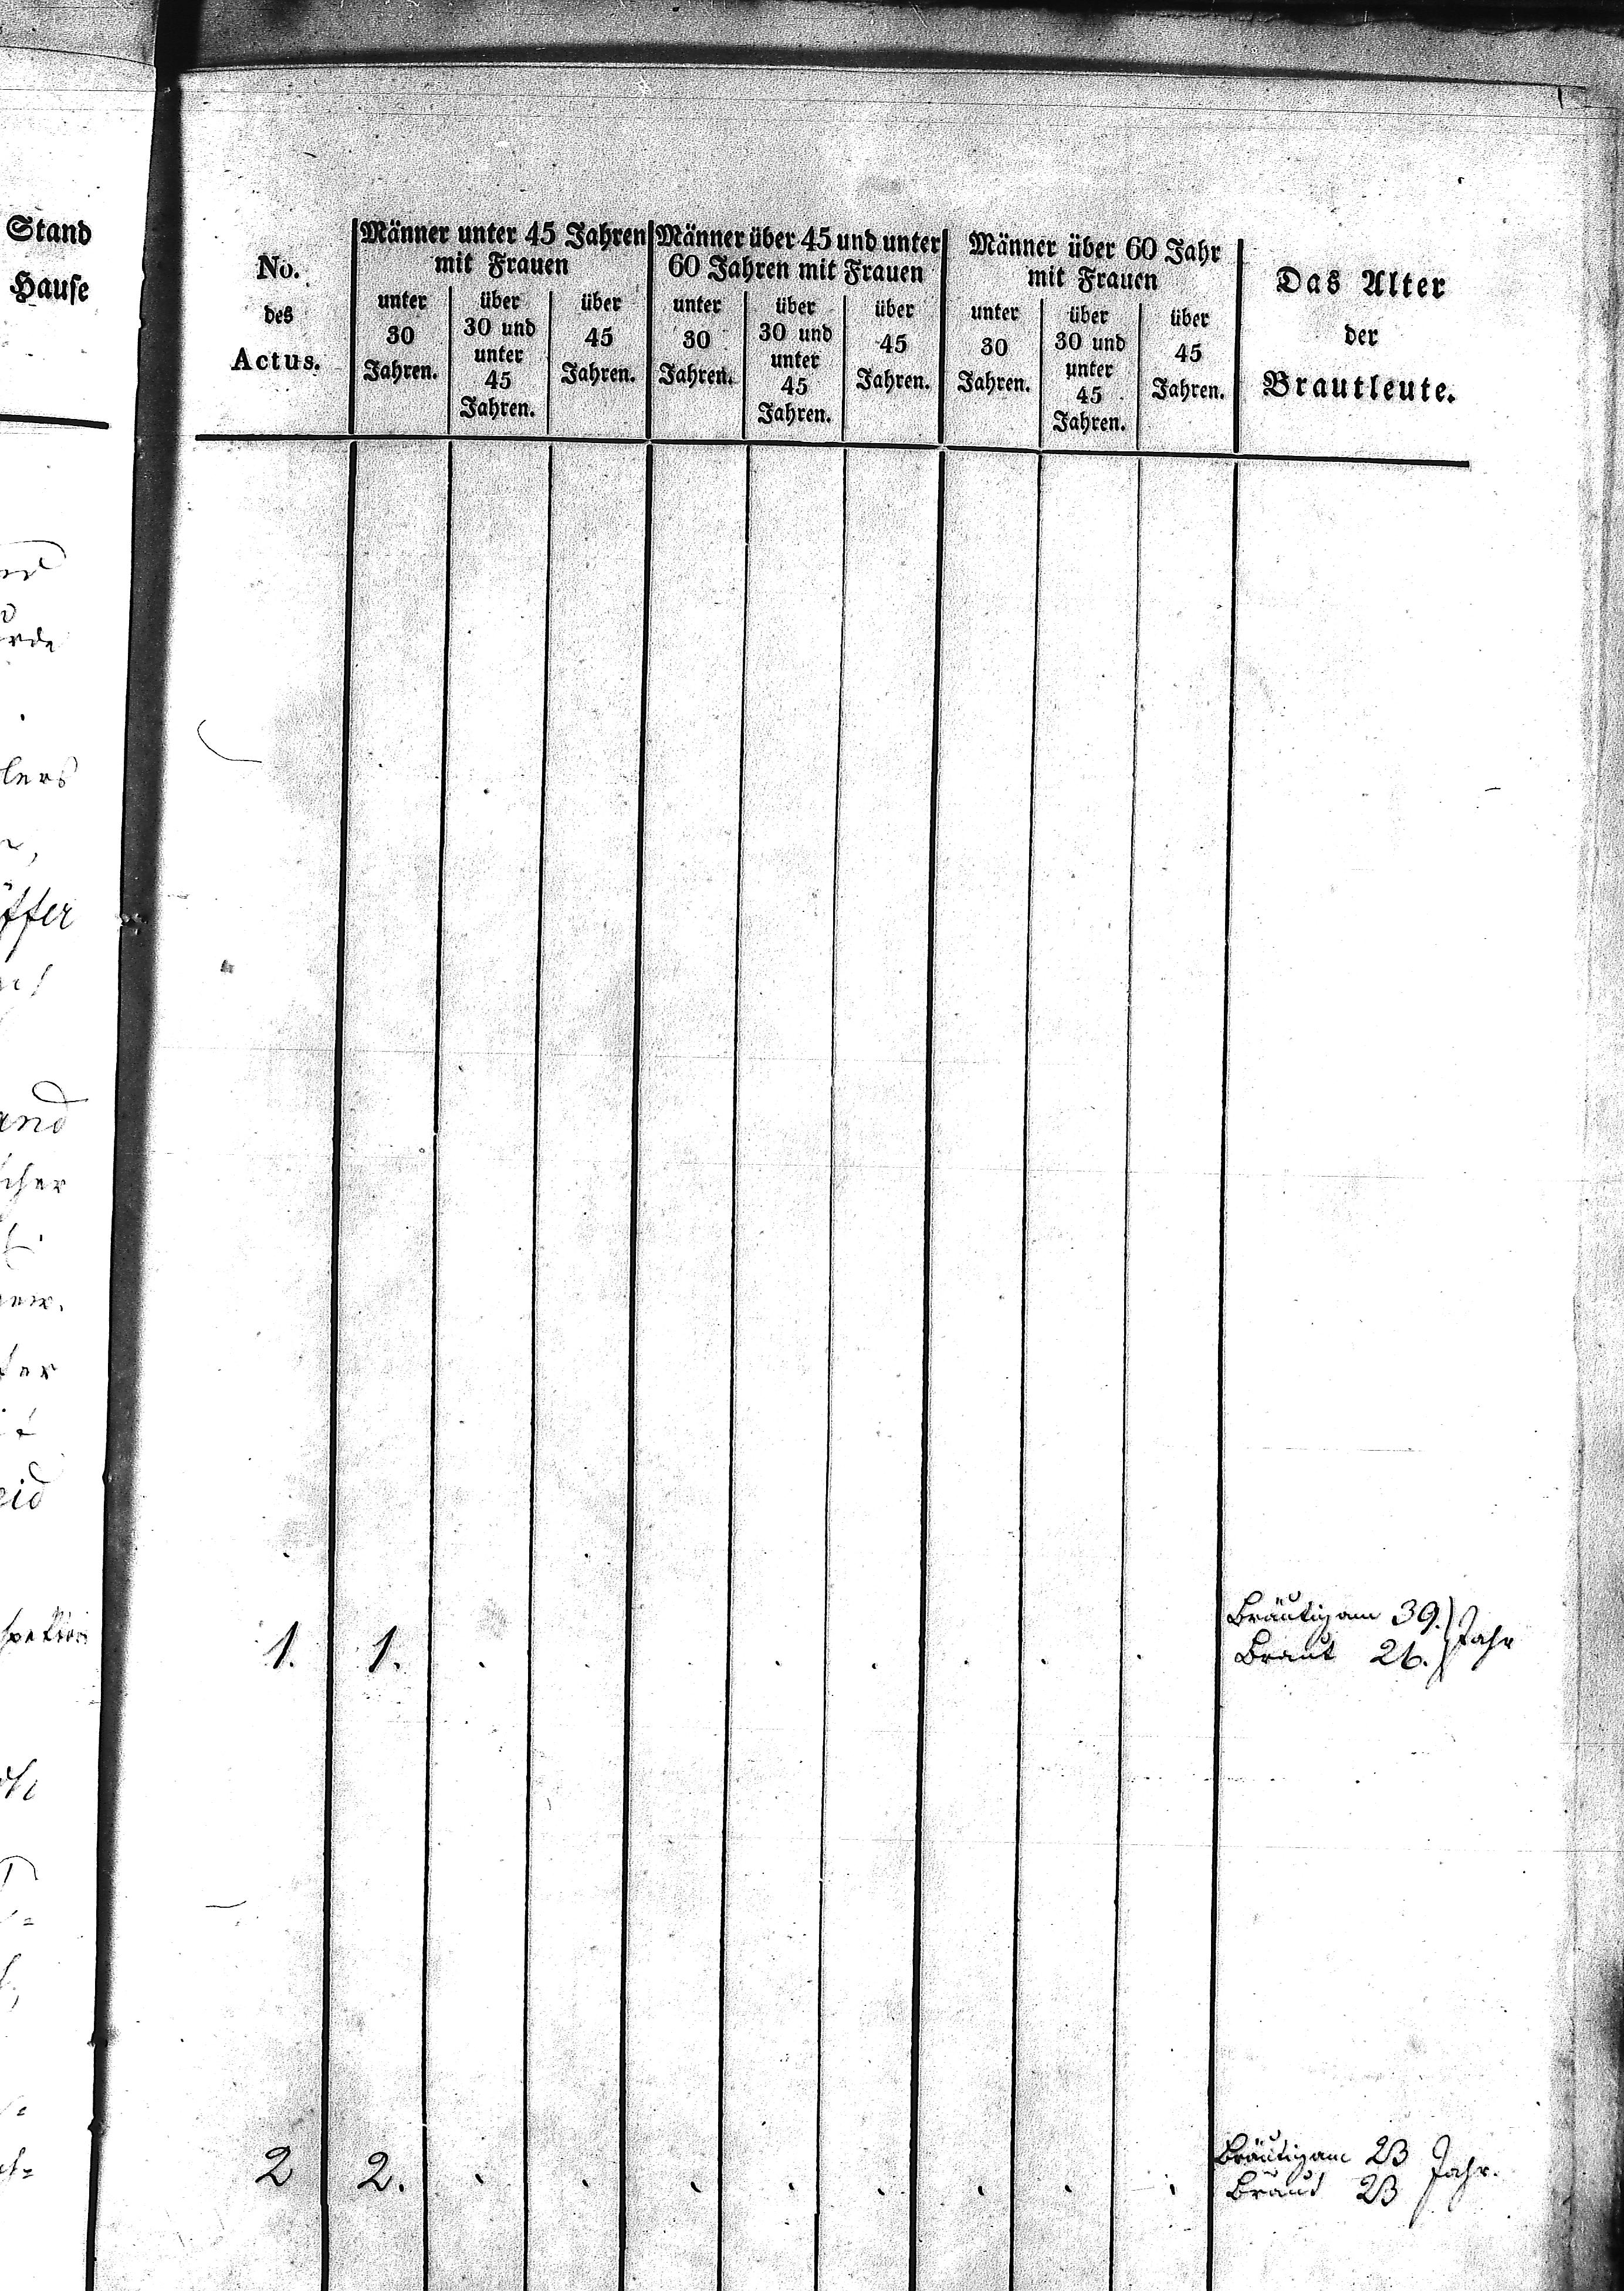 Stand
Hause
No.
des
Actus.
Männer unter 45 Jahren
mit Frauen
unter
30
Jahren.
über
30 und
unter
45
Jahren.
über
45
Jahren.
Männer über 45 und unter
60 Jahren mit Frauen
unter
30
Jahren.
über
30 und
unter
45
Jahren.
über
45
Jahren.
Männer über 60 Jahr
mit Frauen
unter
30
Jahren.
über
30 und
unter
45
Jahren.
über
45
Jahren.
Das Alter
der
Brautleute.
1. 1. . . . . . . . .
Bräutigam 39. Jahr
Braut 26.
2 2. . . . . . . . .
Bräutigam 23 Jahr.
Braut 23